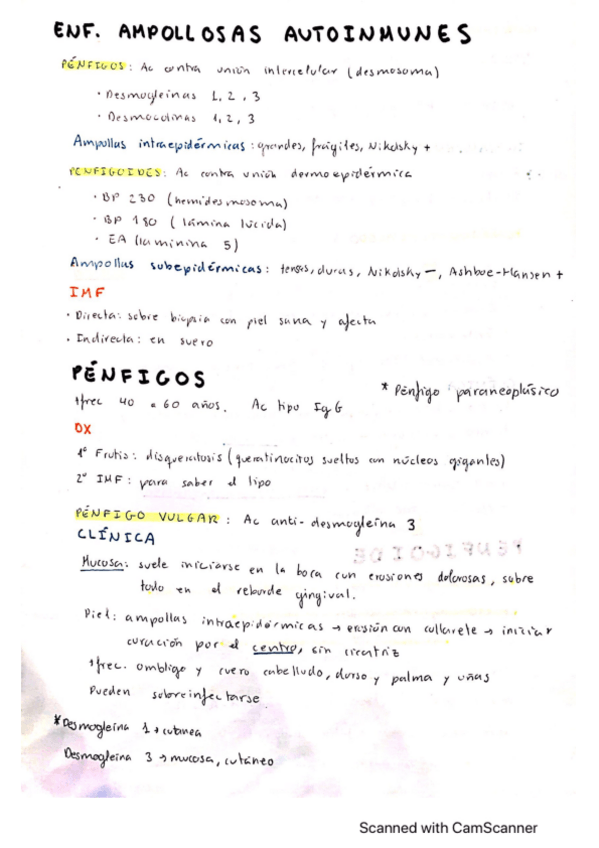 ENF. AMPOLLOSAS AUTOINMUNES
PÉNFIGOS: Ac contra unión intercelular (desmosoma)
· Desmogleinas 1, 2, 3
· Desmocolinas 1, 2, 3
Ampollas intraepidérmicas: grandes, frágiles, Nikolsky +
PENFIGOIDES: Ac contra unión dermoepidérmica
· BP 230 (hemidesmosoma)
· BP 180 (lámina lúcida)
· EA (laminina 5)
Ampollas subepidérmicas: tensas, duras, Nikolsky –, Ashboe-Hansen +
IMF
· Directa: sobre biopsia con piel sana y afecta
· Indirecta: en suero
PÉNFIGOS
* Pénfigo paraneoplásico
↑frec 40 a 60 años. Ac tipo IgG
DX
1º Frotis: disqueratosis (queratinocitos sueltos con núcleos gigantes)
2º IMF: para saber el tipo
PÉNFIGO VULGAR: Ac anti-desmogleína 3
CLÍNICA
Mucosa: suele iniciarse en la boca con erosiones dolorosas, sobre
todo en el reborde gingival.
Piel: ampollas intraepidérmicas → erosión con collarete → iniciar
curación por el centro, sin cicatriz
↑frec. ombligo y cuero cabelludo, dorso y palma y uñas
Pueden sobreinfectarse
*Desmogleína 1 → cutanea
Desmogleína 3 → mucosa, cutáneo
Scanned with CamScanner